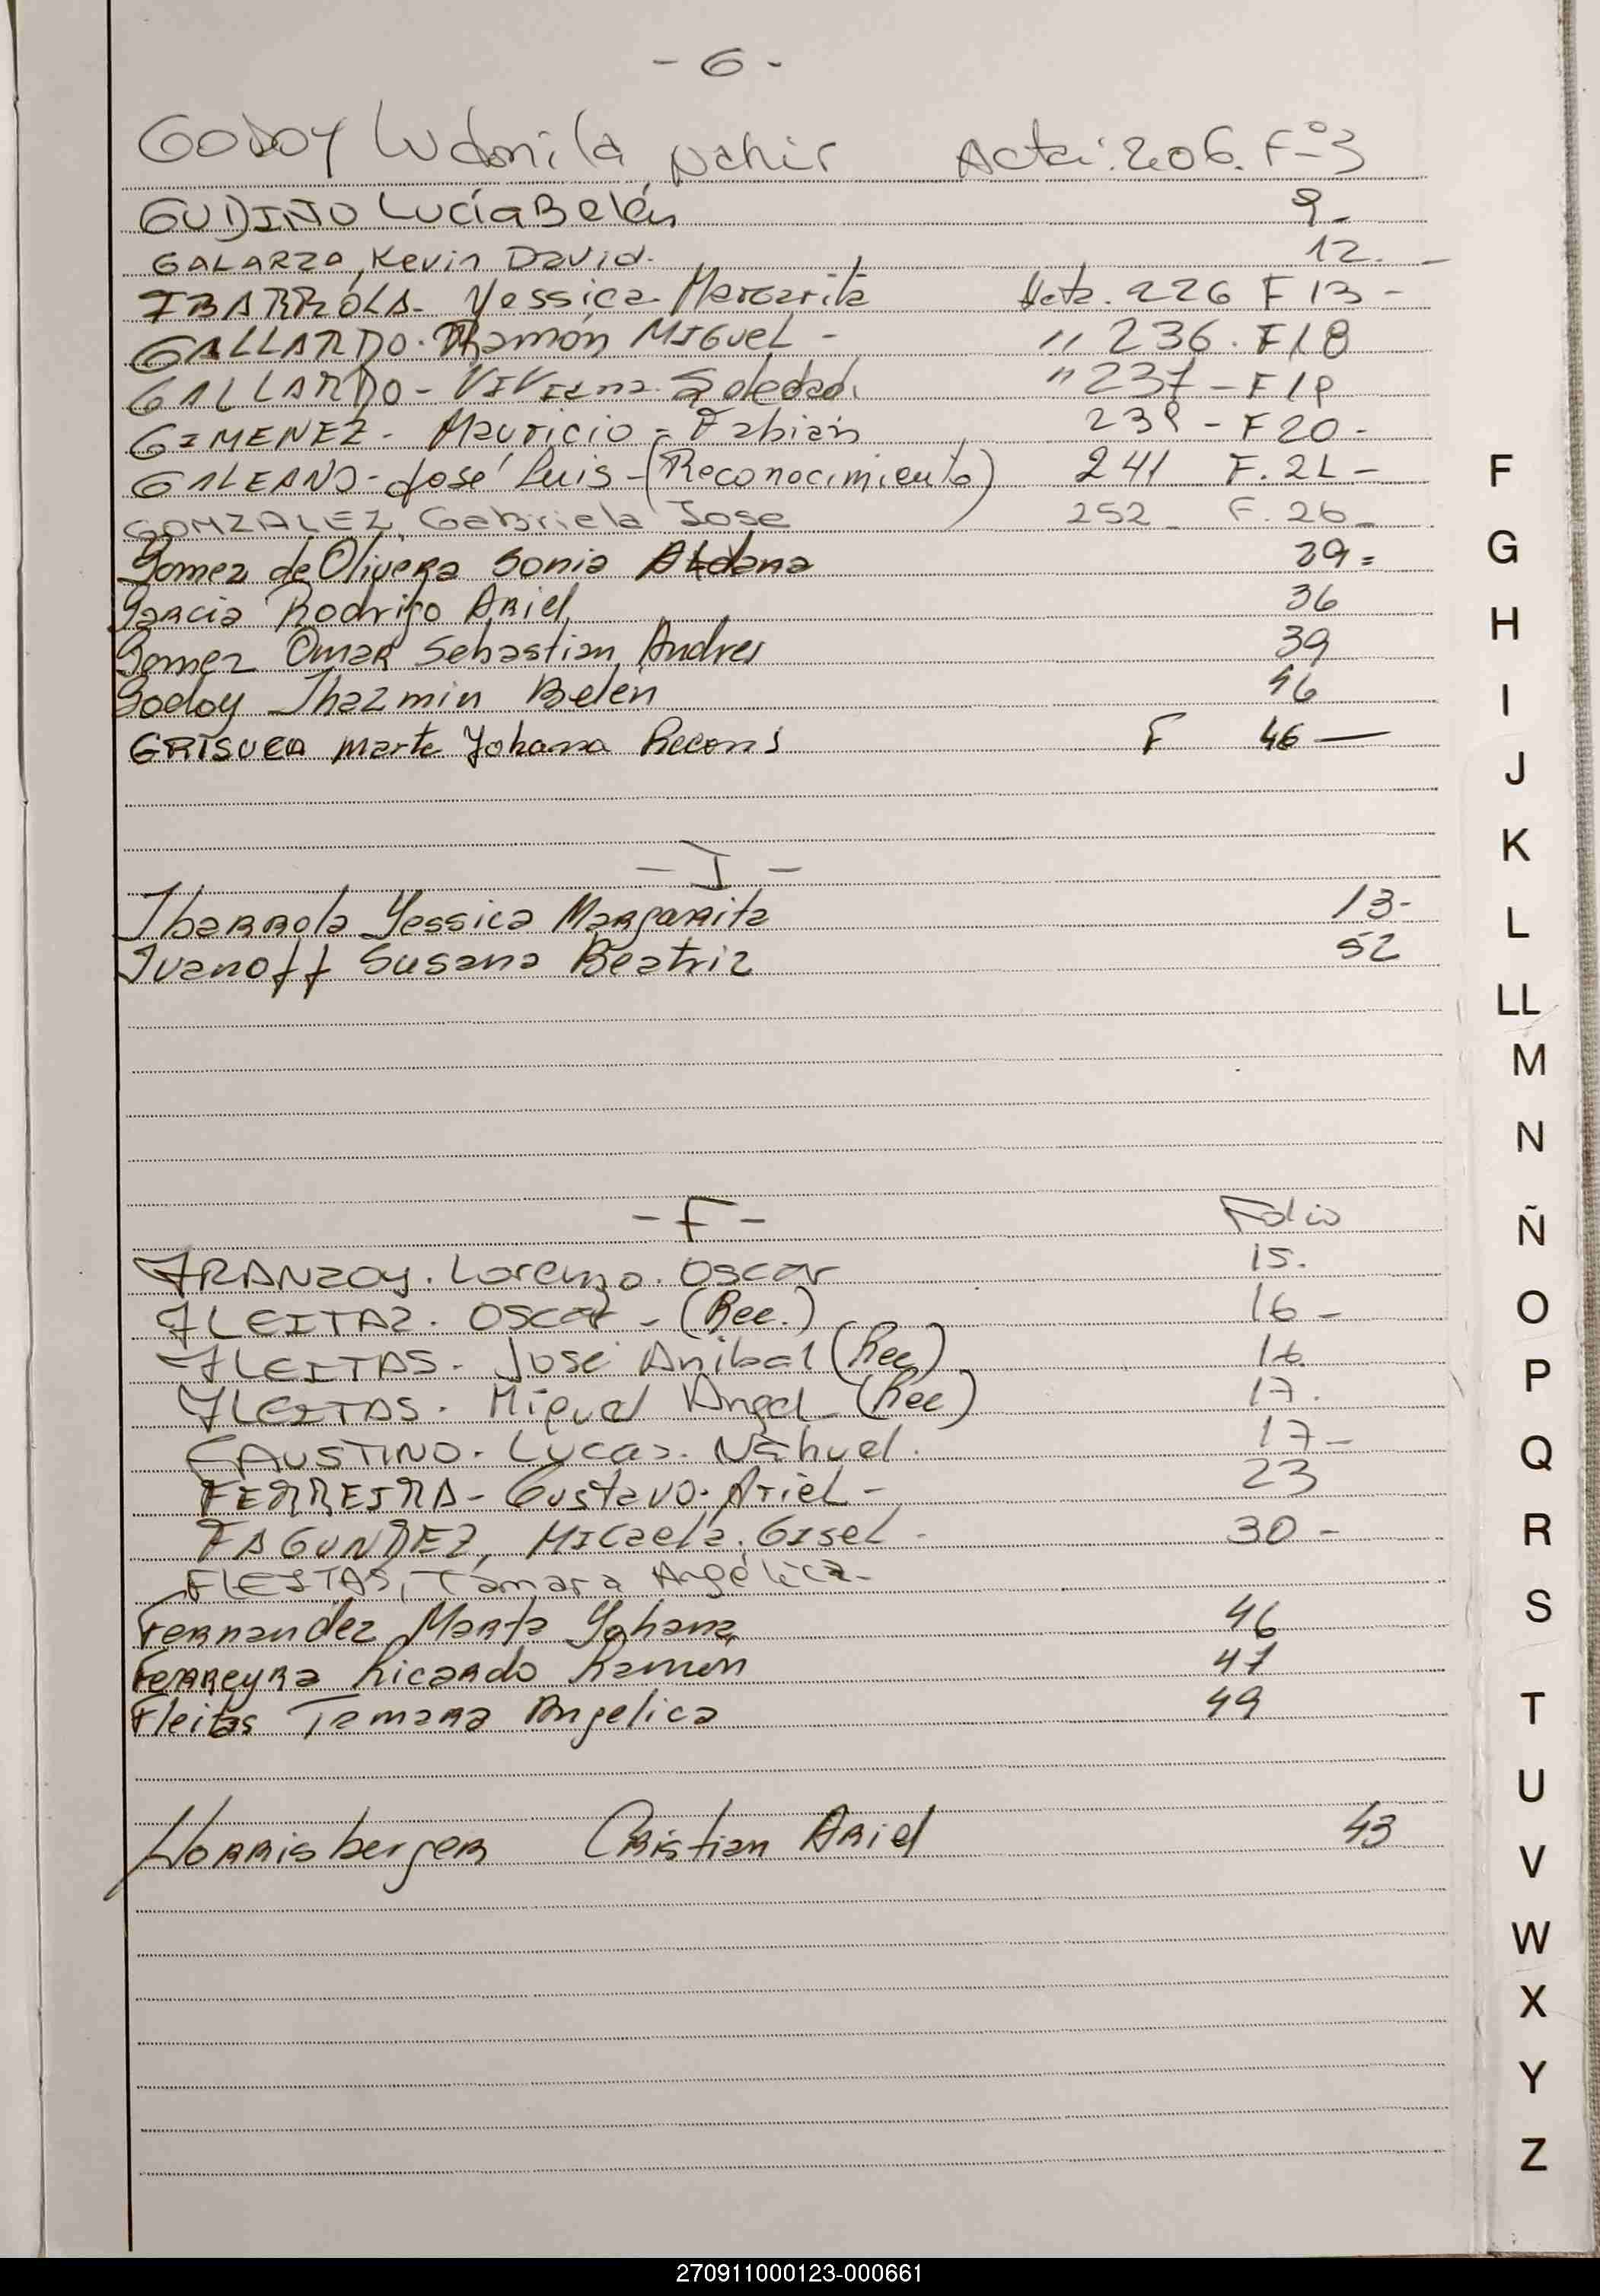 - G -
GODOY Ludmila Nahir Acta: 206. Fº 3
GUDIÑO Lucía Belén 9-
GALARZA, Kevin David. 12. -
IBARROLA- Yessica Margarita Acta. 226 F 13 -
GALLARDO. Ramón Miguel - " 236. F18
GALLARDO - Viviana Soledad. " 237 - F19
GIMENEZ - Mauricio - Fabián 239 - F20 -
GALEANO - José Luis - (Reconocimiento) 241 F. 21 -
GONZALEZ, Gabriela Jose 252 - F. 26 -
Gomez de Olivera Sonia Aldana 29 =
Garcia Rodrigo Ariel 36
Gomez Omar Sebastian Andres 39
Godoy Jhazmin Belén 46
GRISUCA Marta Yohana Recons F 46 —
- I -
Ibarrola Yessica Margarita 13-
Ivanoff Susana Beatriz 52
- F - Folio
FRANZOY. Lorenzo. Oscar 15.
FLEITAZ. Oscar - (Rec.) 16 -
FLEITAS. José Anibal (Rec) 16
FLEITAS. Miguel Angel - (Rec) 17.
FAUSTINO. Lucas. Nahuel. 17 -
FERREIRA - Gustavo. Ariel - 23
FAGUNDEZ, Micaela. Gisel - 30 -
FLEITAS, Tamara Angélica -
Fernandez Marta Yohana 46
Ferreyra Ricardo Ramón 47
Fleitas Tamara Angelica 49
Horrisberger Cristian Ariel 43
F
G
H
I
J
K
L
LL
M
N
Ñ
O
P
Q
R
S
T
U
V
W
X
Y
Z
270911000123-000661